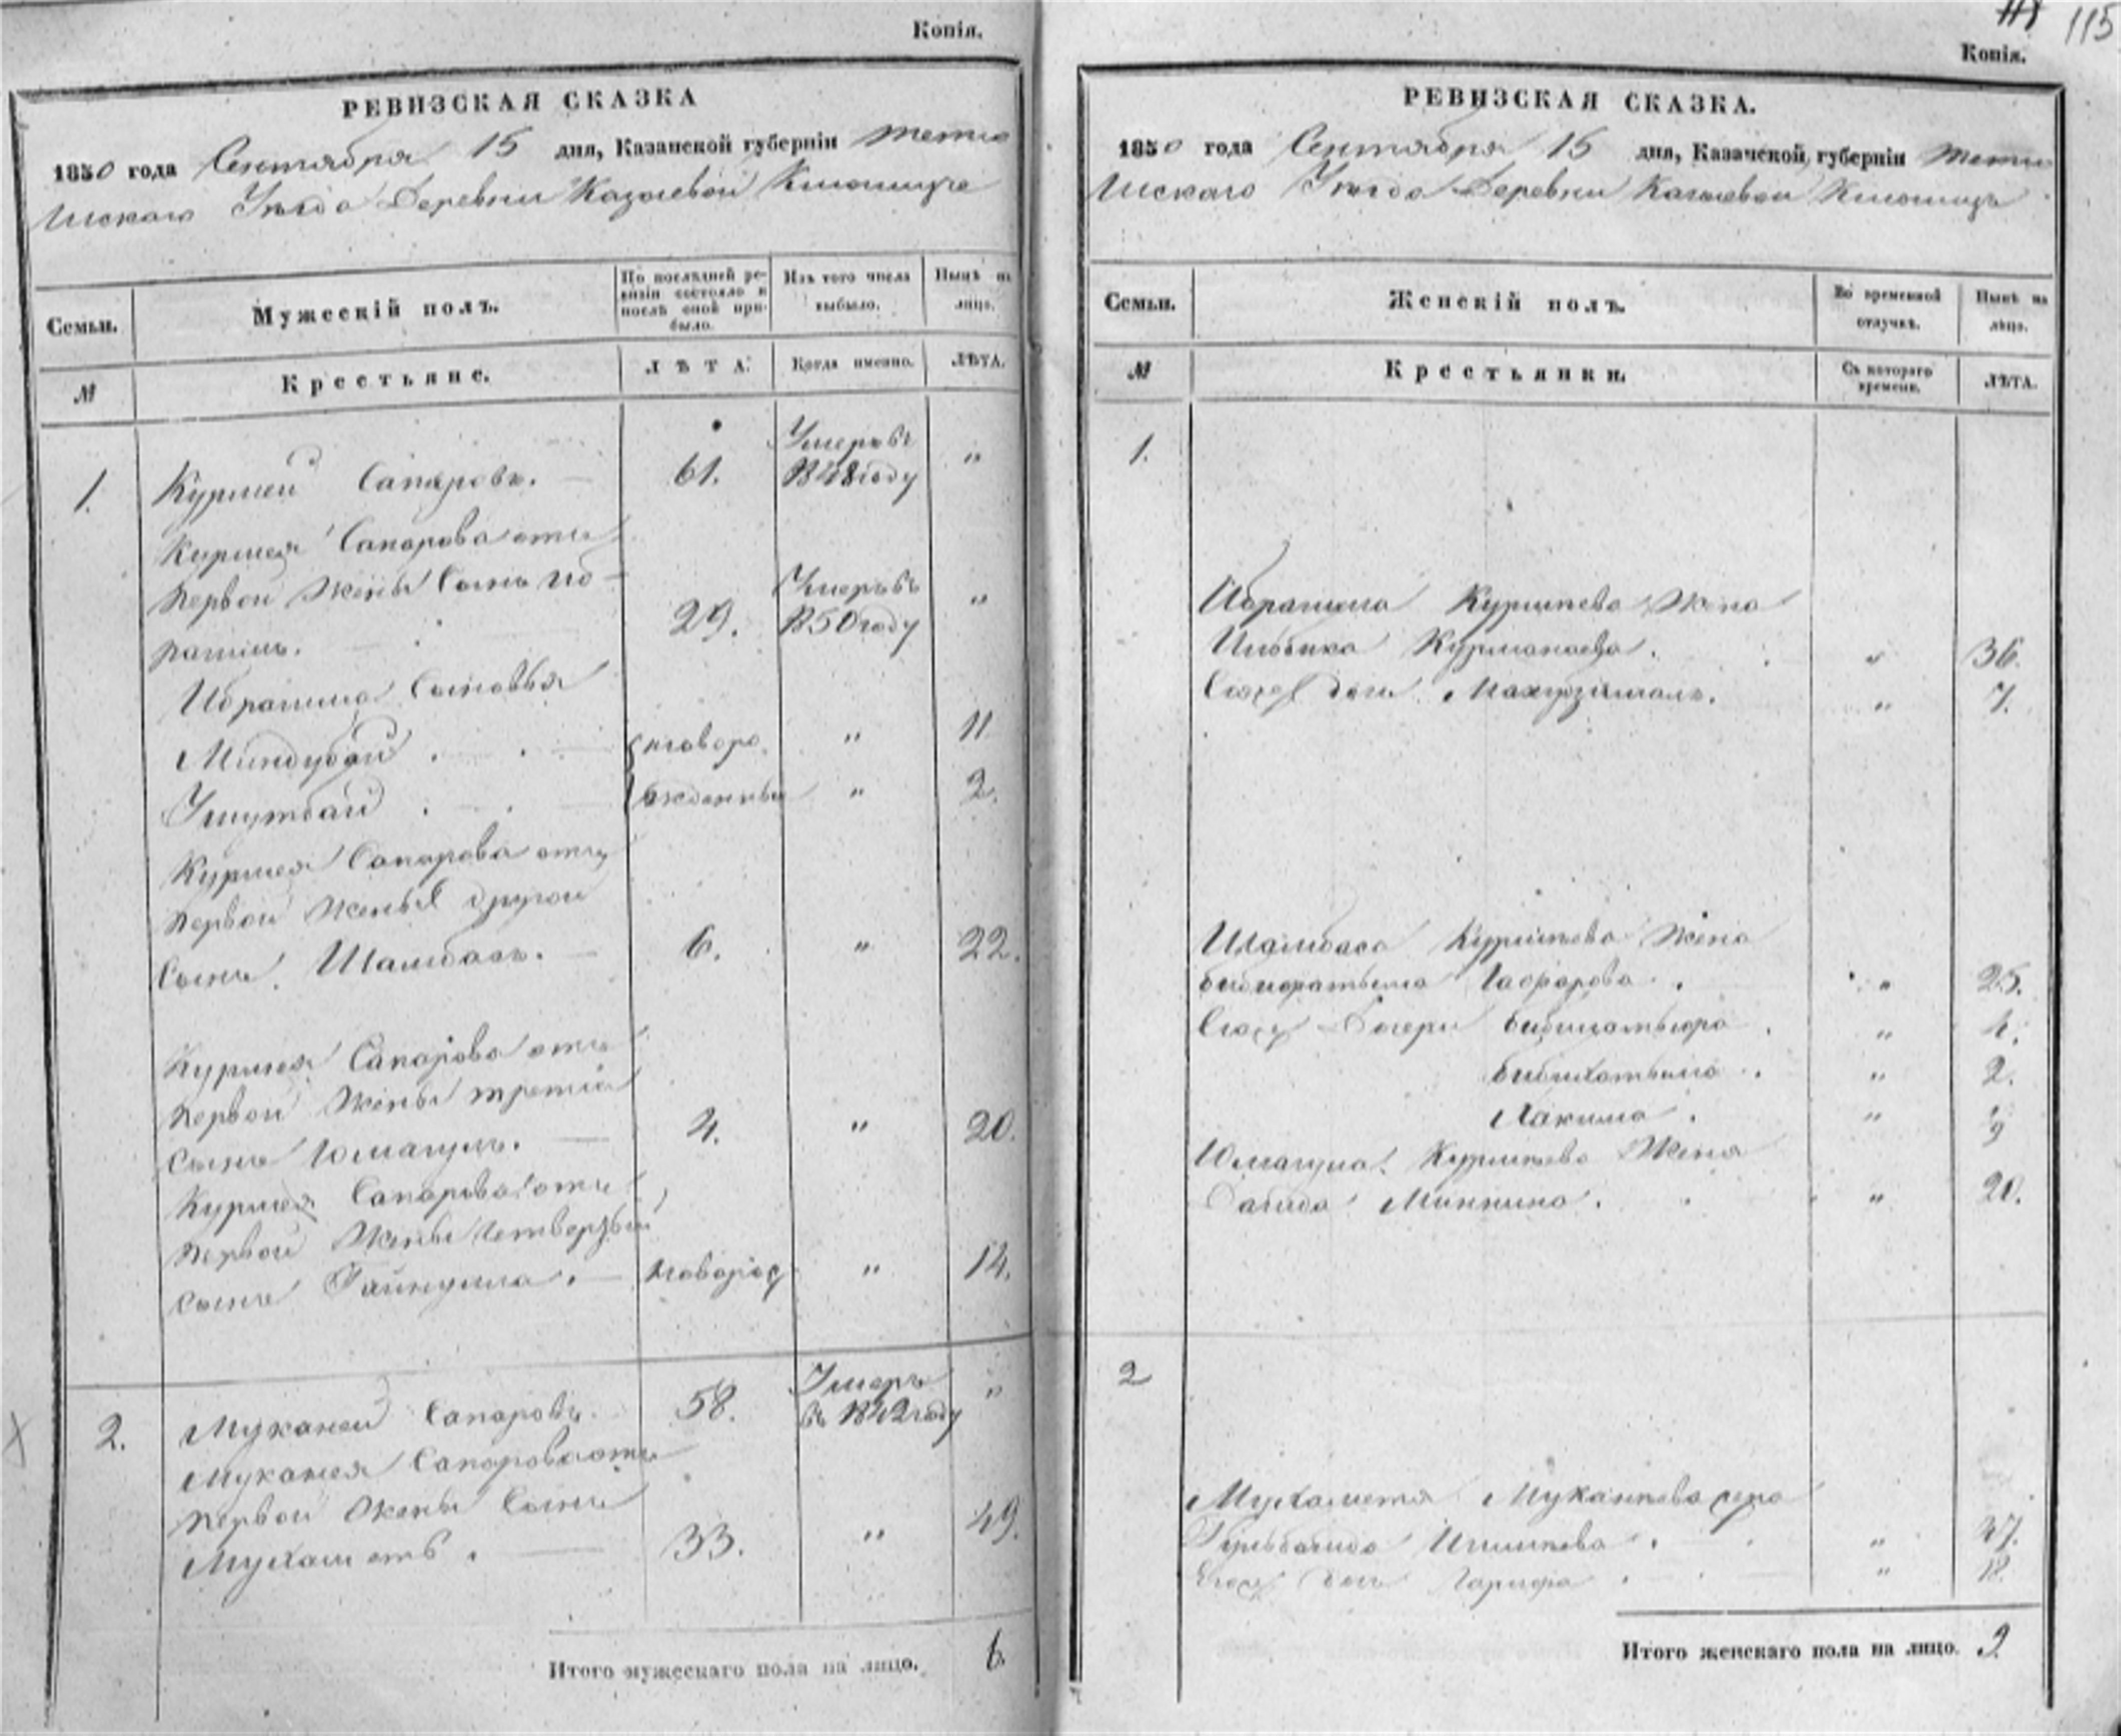 Копія.
РЕВИЗСКАЯ СКАЗКА
1850 года Сентября 15 дня, Казанской губерніи Тетю
шскаго Уѣзда Деревни
Семьи.
Мужескій полъ.
По послѣдней ре-
визіи состояло и
послѣ оной при-
было.
Изъ того числа
выбыло.
Нынѣ на
лицо.
№
Крестьяне.
ЛѢТА.
Когда именно.
ЛѢТА.
1. Курмей Сапаровъ. 61. Умеръ въ 1848 году "
Курмея Сапарова отъ
первой жены сынъ Иб-
рагимъ. 29. Умеръ въ 1850 году "
Ибрагима сыновья
Миндубай . новоро " 11
Ишутбай . жденные " 2.
Курмея Сапарова отъ
первой жены другой
сынъ Шамбазъ. 6. " 22.
Курмея Сапарова отъ
первой жены третій
сынъ Юмагулъ. 4. " 20.
Курмея Сапарова отъ
первой жены четвертый
сынъ Гайнулла. новорож " 14.
2. Муканей Сапаровъ. 58. Умеръ въ 1842 году "
Муканея Сапарова отъ
первой жены сынъ
Мухаметъ . 33. " 49.
Итого мужескаго пола на лицо. 6.
115
Копія.
РЕВИЗСКАЯ СКАЗКА.
1850 года Сентября 15 дня, Казанской губерніи Тетю
шскаго Уѣзда Деревни
Семьи.
Женскій полъ.
Во временной
отлучкѣ.
Нынѣ на
лицо.
№
Крестьянки.
Съ котораго
времени.
ЛѢТА.
1.
Ибрагима Курмѣева жена
Курманаева . " 36.
дочь " 7.
Шамбаса Курмѣева жена
Гафарова . " 25.
дочери " 4.
" 2.
Хакима . "
Юмагула Курмѣева жена
" 20.
2
Мухаметя Муканѣева жена
" 47.
дочь Гарифа . "
Итого женскаго пола на лицо. 9.